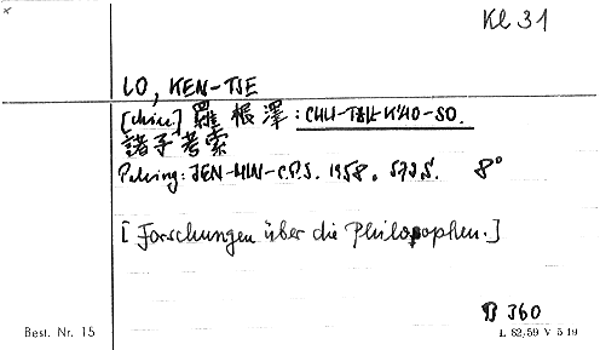 Kl 31
LO, KEN-TSE
[chin.] 羅根澤: CHU-TZE-K'AO-SO.
諸子考索
Peking: JEN-MIN-C.P.S. 1958. 573 S. 8°
[Forschungen über die Philosophen.]
B 360
Best. Nr. 15
L 82/59 V 5 19